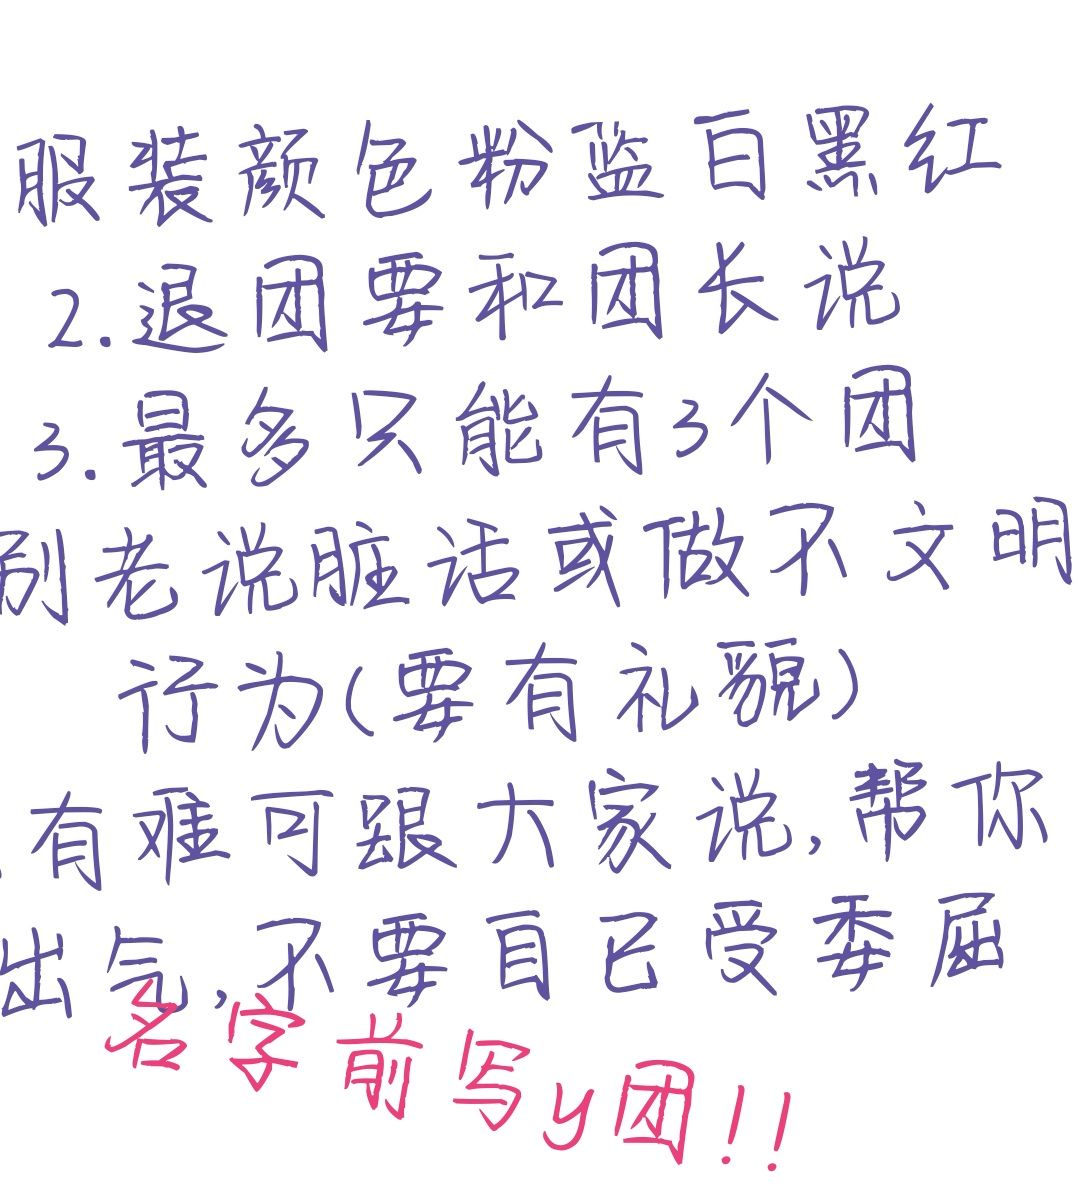 服装颜色粉监白黑红
2.退团要和团长说
3.最多只能有3个团
别老说脏话或做不文明
行为(要有礼貌)
有难可跟大家说,帮你
出气,不要自已受委屈
名字前写y团!!